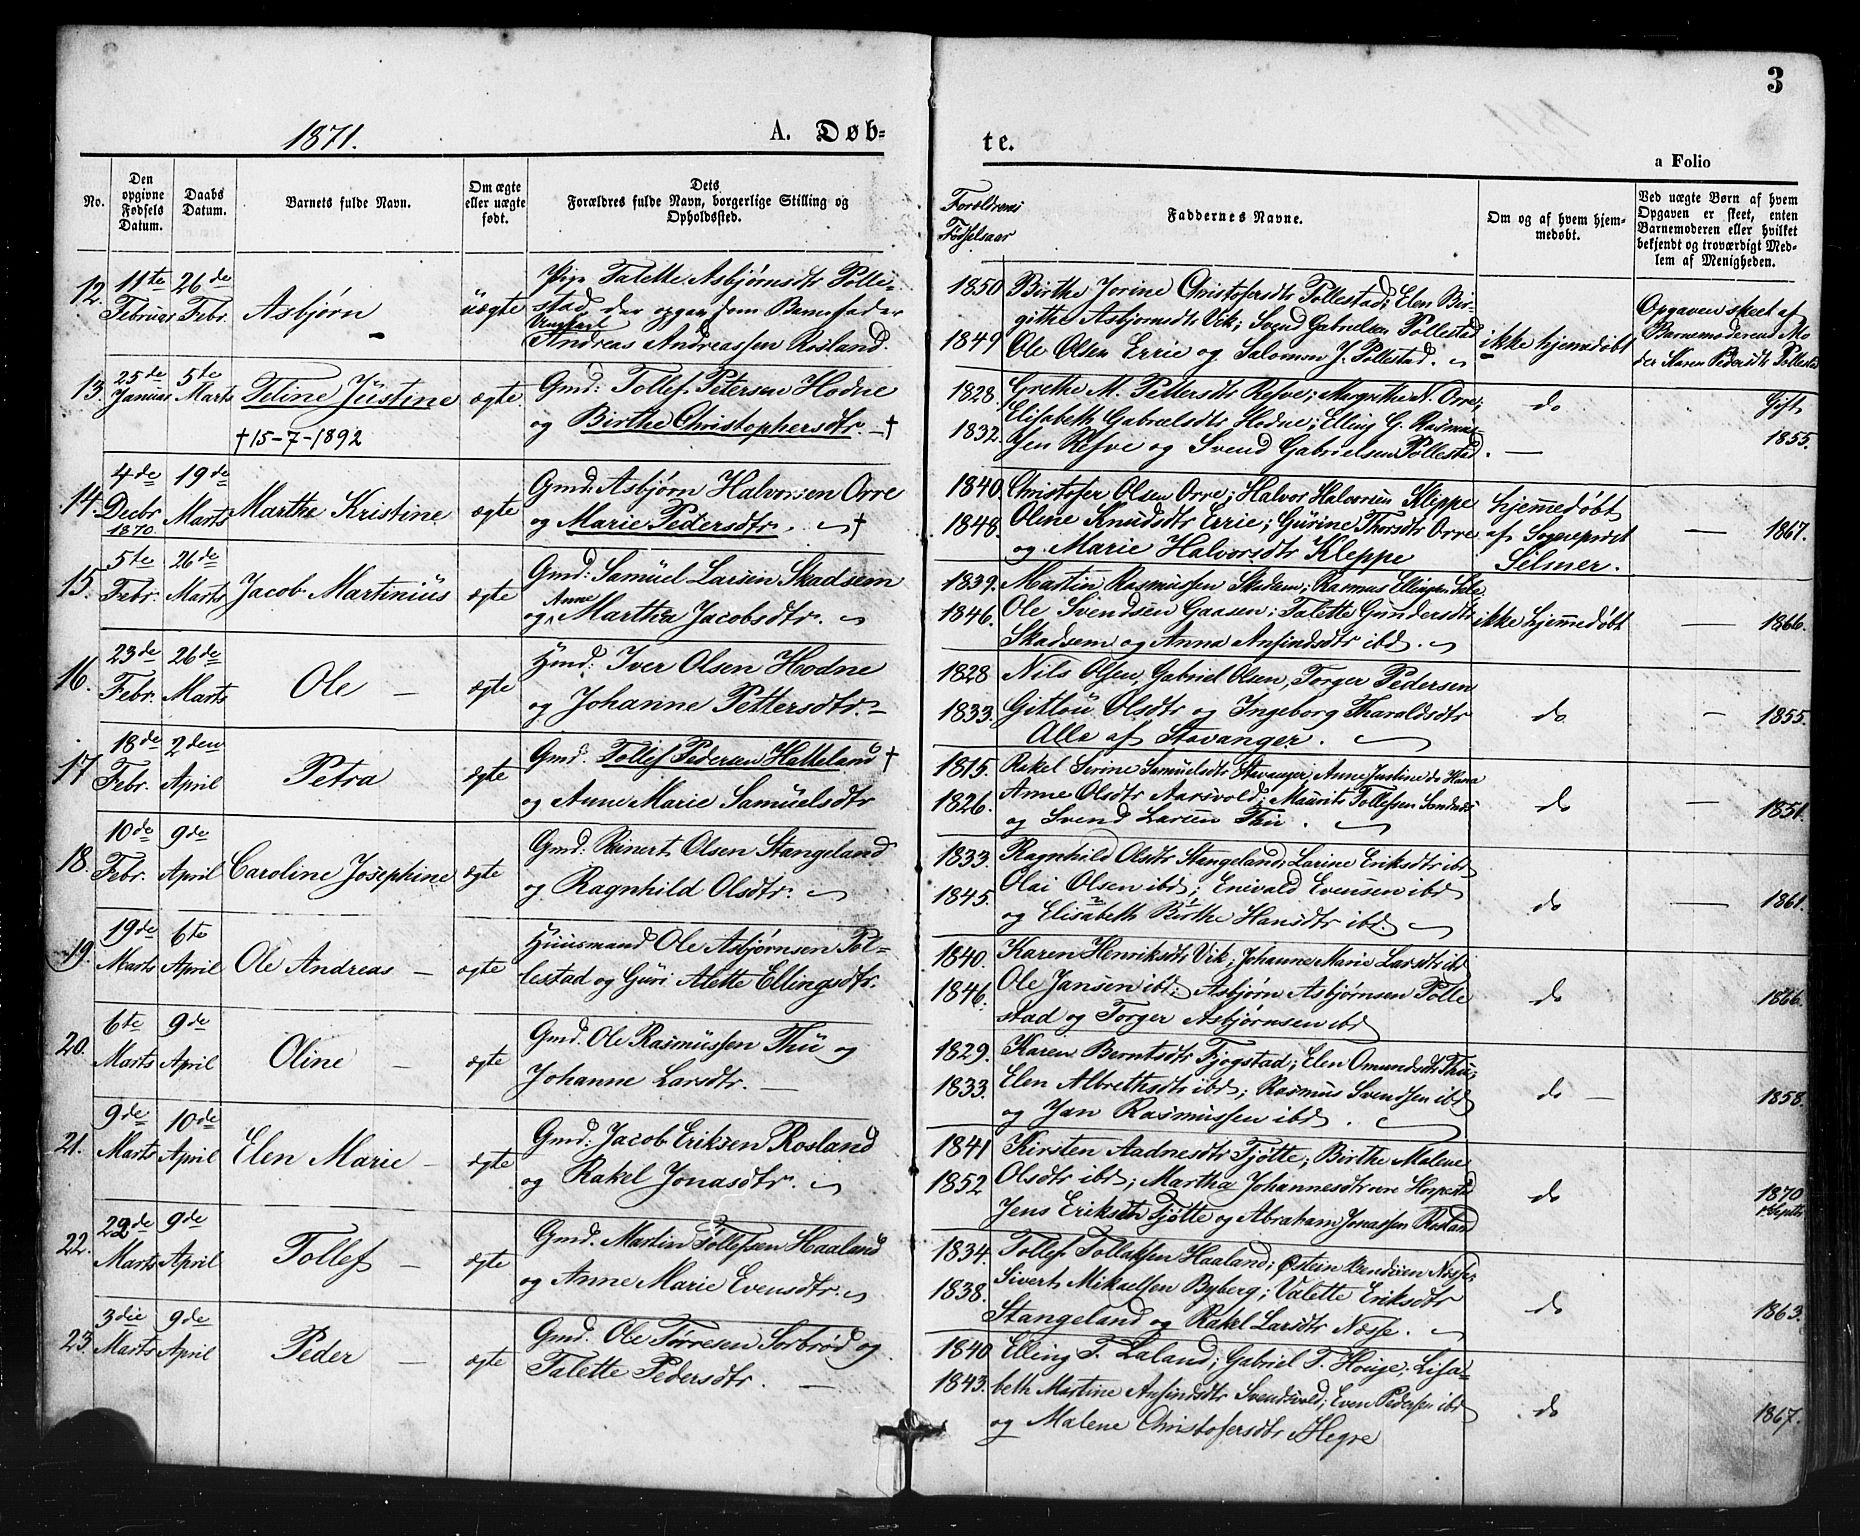 3
1871.
A. Døb-
te.
a Folio
No.
Den opgivne Fødsels Datum.
Daabs Datum.
Barnets fulde Navn.
Om ægte eller uægte født.
Dets Forældres fulde Navn, borgerlige Stilling og Opholdssted.
Forældrenes Fødselsaar
Faddernes Navne.
Om og af hvem hjemmedøbt.
Ved uægte Børn af hvem Opgaven er skeet, enten Barnemoderen eller hvilket bekjendt og troværdigt Medlem af Menigheden.
12.
11te Februar
26de Febr.
Asbjørn
uægte
Pige Talette Asbjørnsdtr Polle-
stad, der opgav som Barnefader
Ungkarl
Andreas Andreassen Rosland.
1850
1849
Birthe Jorine Christofersdtr Pollestad; Elen Bir-
githe Asbjørnsdtr Vik; Svend Gabrielsen Pollestad
Ole Olsen Errie og Salomon J. Pollestad.
ikke hjemmedøbt
Opgaven skeet af
Barnemoderens Mo
der Karen Pedersdtr Pollestad
13.
25de Januar
5te Marts
Teline Justine
† 15-7-1892
ægte
Gmd: Tollef Petersen Hodne
og Birthe Christophersdtr. †
1828.
1832.
Grethe M. Pettersdtr Refve; Margrethe N. Orre;
Elisabeth Gabrielsdtr Hodne; Elling G. Rasmus-
sen Refve og Svend Gabrielsen Pollestad.
do
Gift
1855.
14.
4de Decbr 1870.
19de Marts
Marthe Kristine
ægte
Gmd: Asbjørn Halvorsen Orre
og Marie Pedersdtr. †
1840.
1848.
Christofer Olsen Orre; Halvor Halvorsen Kleppe
Oline Knudsdtr Errie; Gürine Thorsdtr Orre
og Marie Halvorsdtr Kleppe
hjemmedøbt
af Sogneprest
Selmer.
1867.
15.
5te Febr.
26de Marts
Jacob Martinius
ægte
Gmd: Samuel Larsen Skadsem
Anne
og Martha Jacobsdtr.
1839.
1846.
Martin Rasmussen Skadsem; Rasmus Ellingsen Sele
Ole Svendsen Gaasen; Talette Gundersdtr
Skadsem og Anna Ansindsdtr ibd.
ikke hjemmedøbt
1866.
16.
23de Febr.
26de Marts
Ole
ægte
Hmd: Iver Olsen Hodne
og Johanne Pettersdtr.
1828
1833.
Nils Olsen, Gabriel Olsen, Torger Pedersen
Gitlou Olsdtr og Ingeborg Tharaldsdtr
Alle af Stavanger.
do
1855.
17.
18de Febr.
2den April
Petra
ægte
Gmd. Tollef Pedersen Hatteland †
og Anne Marie Samuelsdtr
1815.
1826.
Rakel Serine Samuelsdtr Stavanger, Anne Justine do Hana
Anne Olsdtr Aarsvold; Maurits Tollefsen Sandnes
og Svend Larsen Thu.
do
1851.
18.
10de Febr.
9de April
Caroline Josephine
ægte
Gmd: Reinert Olsen Stangeland
og Ragnhild Olsdtr.
1833.
1845.
Ragnhild Olsdtr Stangeland; Larine Eriksdtr ibd
Olai Olsen ibd; Enevald Evensen ibd
og Elisabeth Birthe Hansdtr ibd.
do
1861.
19.
19de Marts
6te April
Ole Andreas
ægte
Huusmand Ole Asbjørnsen Pol-
lestad og Guri Alette Ellingsdtr.
1840.
1846.
Karen Henriksdtr Vik, Johanne Marie Larsdtr ibd
Ole Jansen ibd; Asbjørn Asbjørnsen Polle
stad og Torger Asbjørnsen ibd
do
1866.
20.
6te Marts
9de April
Oline
ægte
Gmd. Ole Rasmussen Thu og
Johanne Larsdtr.
1829.
1833.
Karen Berntsdtr Fjogstad; Elen Omundsdtr Thu;
Elen Albrethsdtr ibd; Rasmus Svendsen ibd
og Jan Rasmussen ibd.
do
1858.
21.
9de Marts
10de April
Elen Marie
ægte
Gmd: Jacob Eriksen Rosland
og Rakel Jonasdtr.
1841
1852
Kirsten Aadnesdtr Tjøtte; Birthe Malene
Olsdtr ibd; Martha Johannesdtr øvre Horpestad
Jens Eriksen Tjøtte og Abraham Jonassen Rosland
do
1870
22.
22de Marts
9de April
Tollef
ægte
Gmd. Martin Tollefsen Haaland
og Anne Marie Evensdtr.
1834.
1838.
Tollef Tollaksen Haaland; Østein Bendixen Næsse,
Sivert Mikaelsen Byberg; Valette Eriksdtr
Stangeland og Rakel Larsdtr Næsse.
do
1863.
23.
3die Marts
9de April
Peder
ægte
Gmd. Ole Tørresen Sorbrød og
Talette Pedersdtr.
1840
1843.
Elling T. Laland; Gabriel T. Houge; Lisa-
beth Martine Ansindsdtr Svendsvold; Even Pedersen ibd
og Malene Christofersdtr Hegre
do
1867.